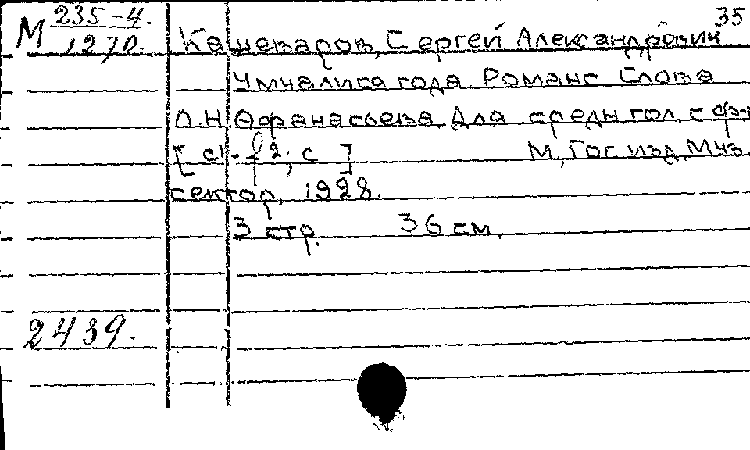 35
М 235-4.
1270.
Кашеваров, Сергей Александрович
Умчалися года. Романс. Слова
Л.Н. Афанасьева. Для средн. гол. с ф-п
[ c1-f2; c ] М., Гос. изд. Муз.
сектор, 1928.
3 стр. 36 см.
2439.